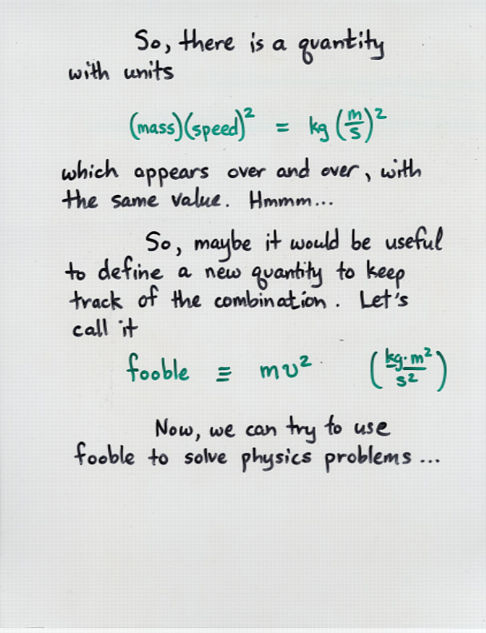 So, there is a quantity
with units
(mass)(speed)² = kg (m/s)²
which appears over and over, with
the same value. Hmmm...
So, maybe it would be useful
to define a new quantity to keep
track of the combination. Let's
call it
fooble ≡ mv² (kg·m²/s²)
Now, we can try to use
fooble to solve physics problems...